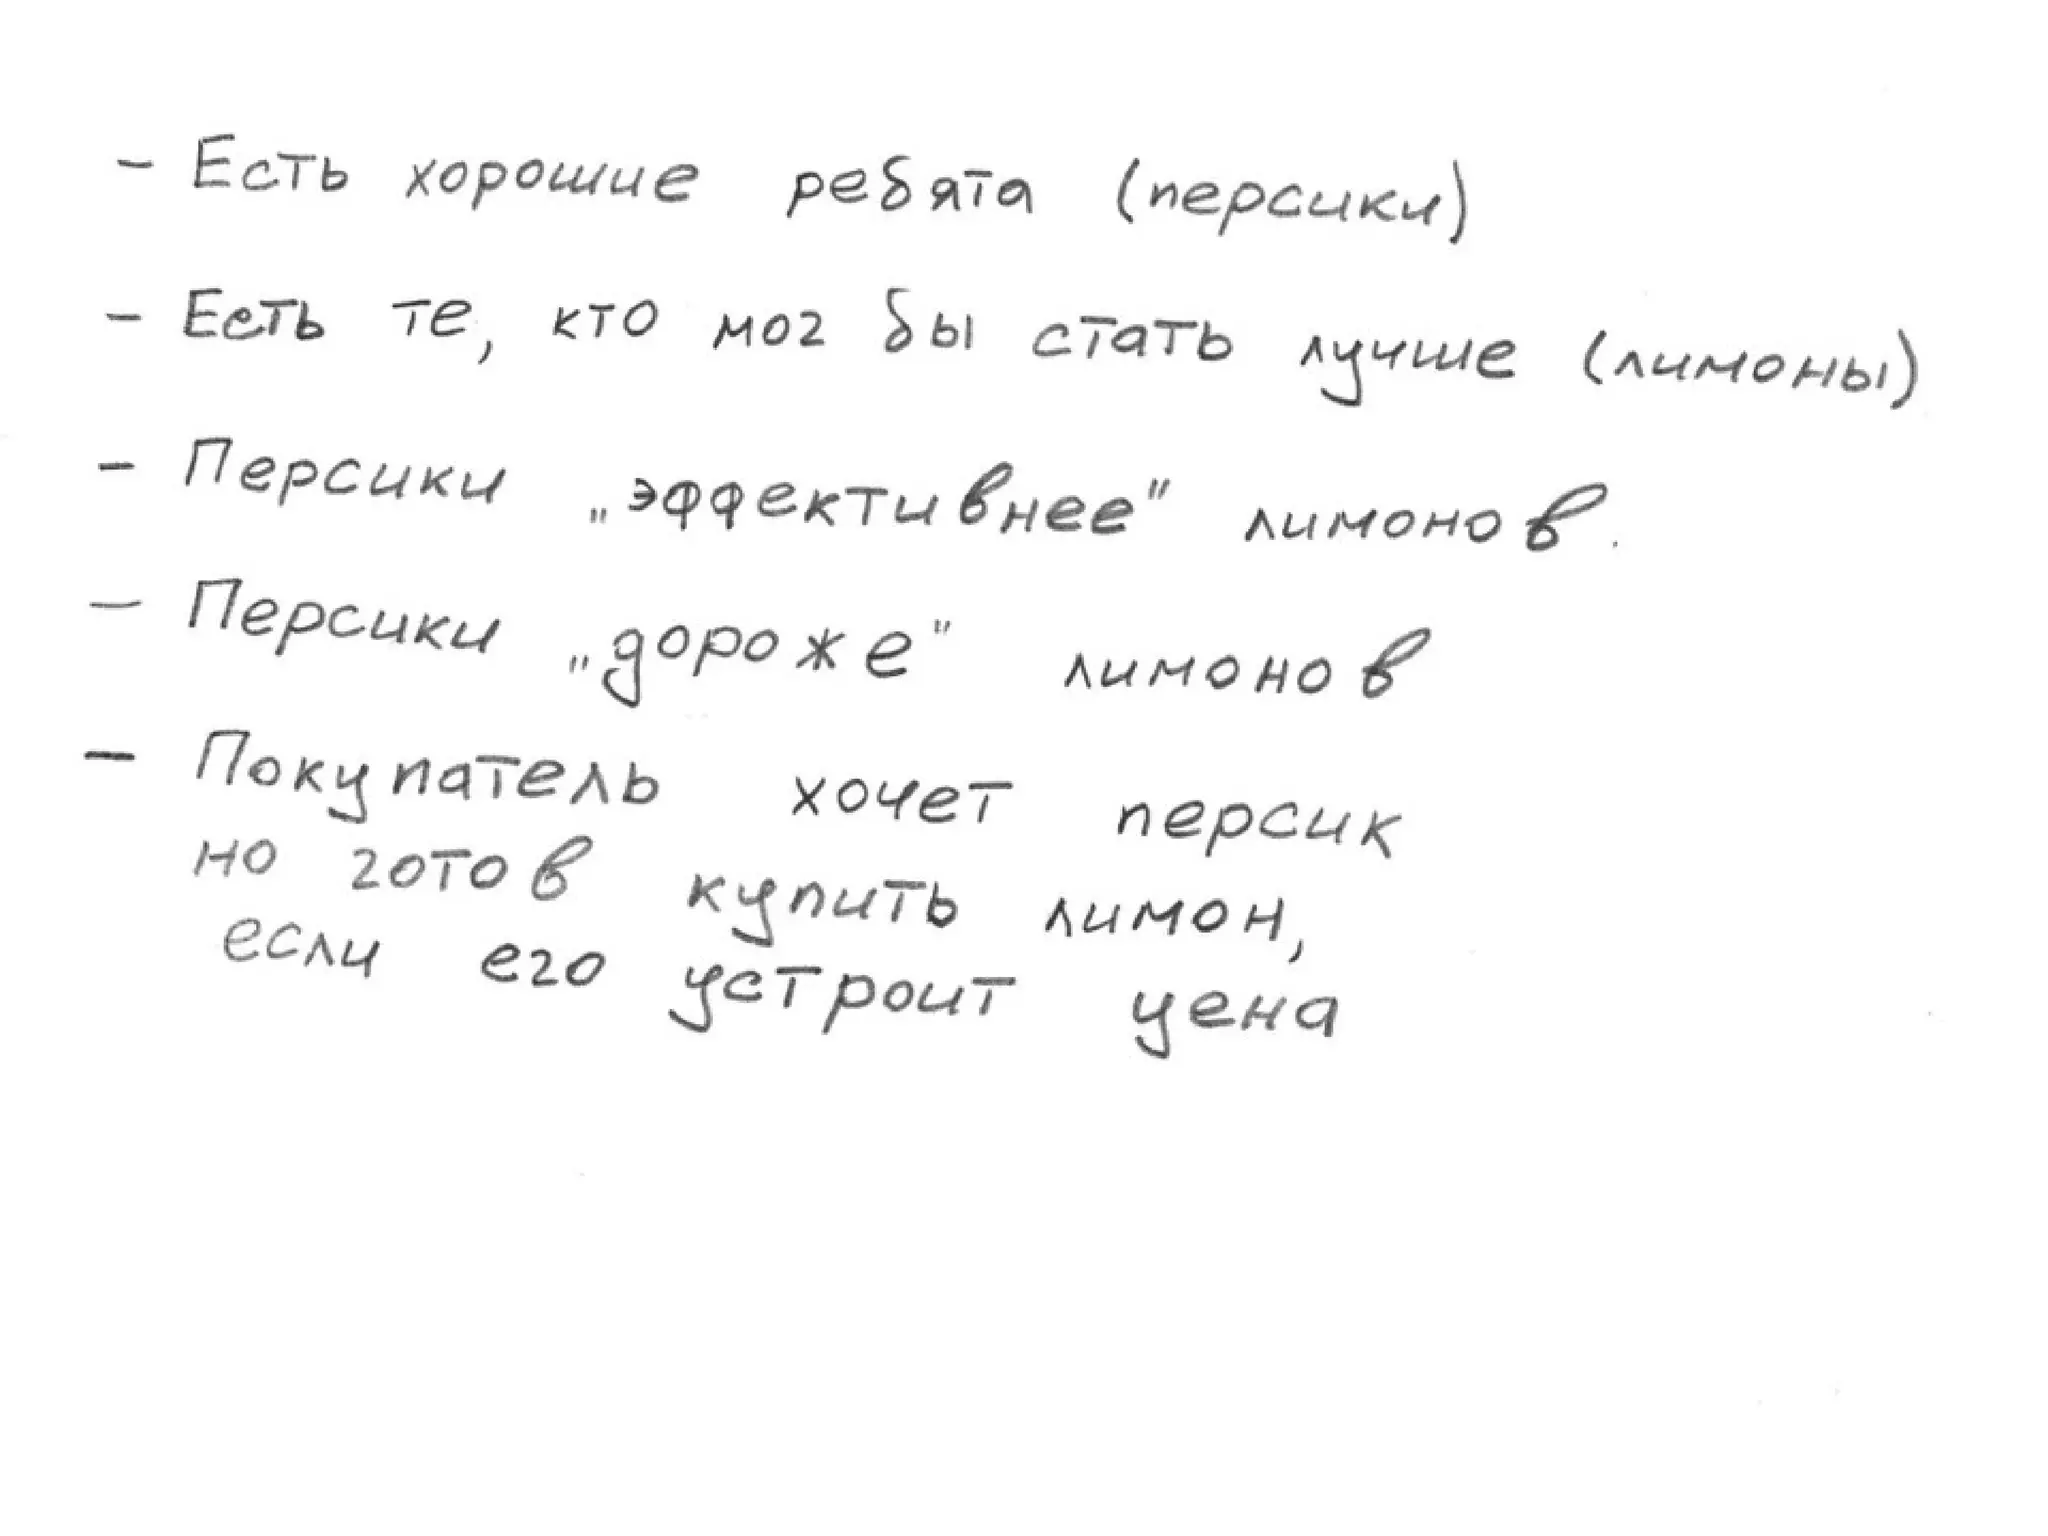 - Есть хорошие ребята (персики)
- Есть те, кто мог бы стать лучше (лимоны)
- Персики „эффективнее" лимонов.
- Персики „дороже" лимонов
- Покупатель хочет персик
но готов купить лимон,
если его устроит цена